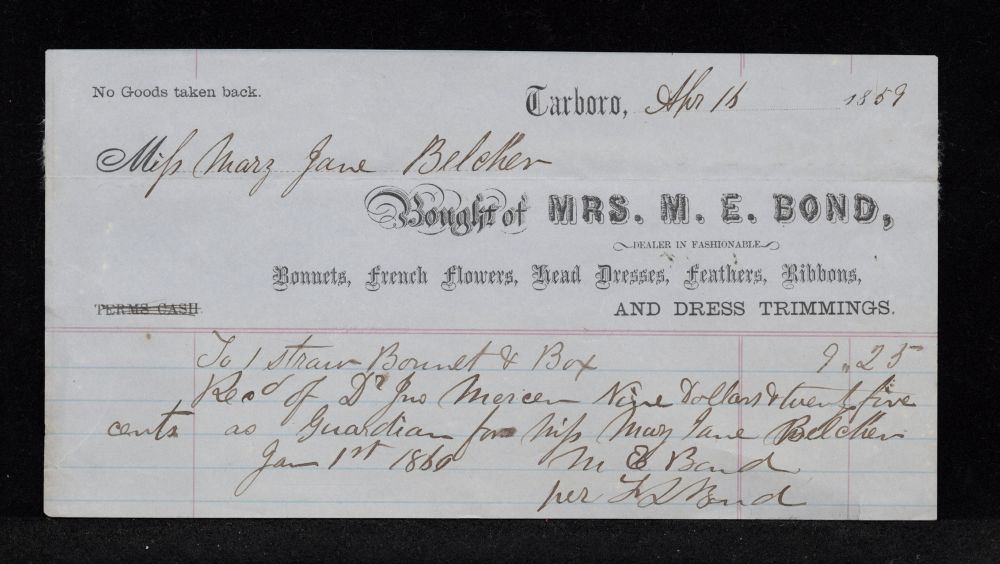 No Goods taken back.
Tarboro, Apr 18 1859
Miss Mary Jane Belcher
Bought of MRS. M. E. BOND,
DEALER IN FASHIONABLE
Bonnets, French Flowers, Head Dresses, Feathers, Ribbons,
TERMS CASH AND DRESS TRIMMINGS.
To 1 straw Bonnet & Box 9.25
Recd of Dr Jno Mercer Nine Dollars & twenty five
cents as Guardian for Miss Mary Jane Belcher
Jan 1st 1860 M E Bond
per Bond